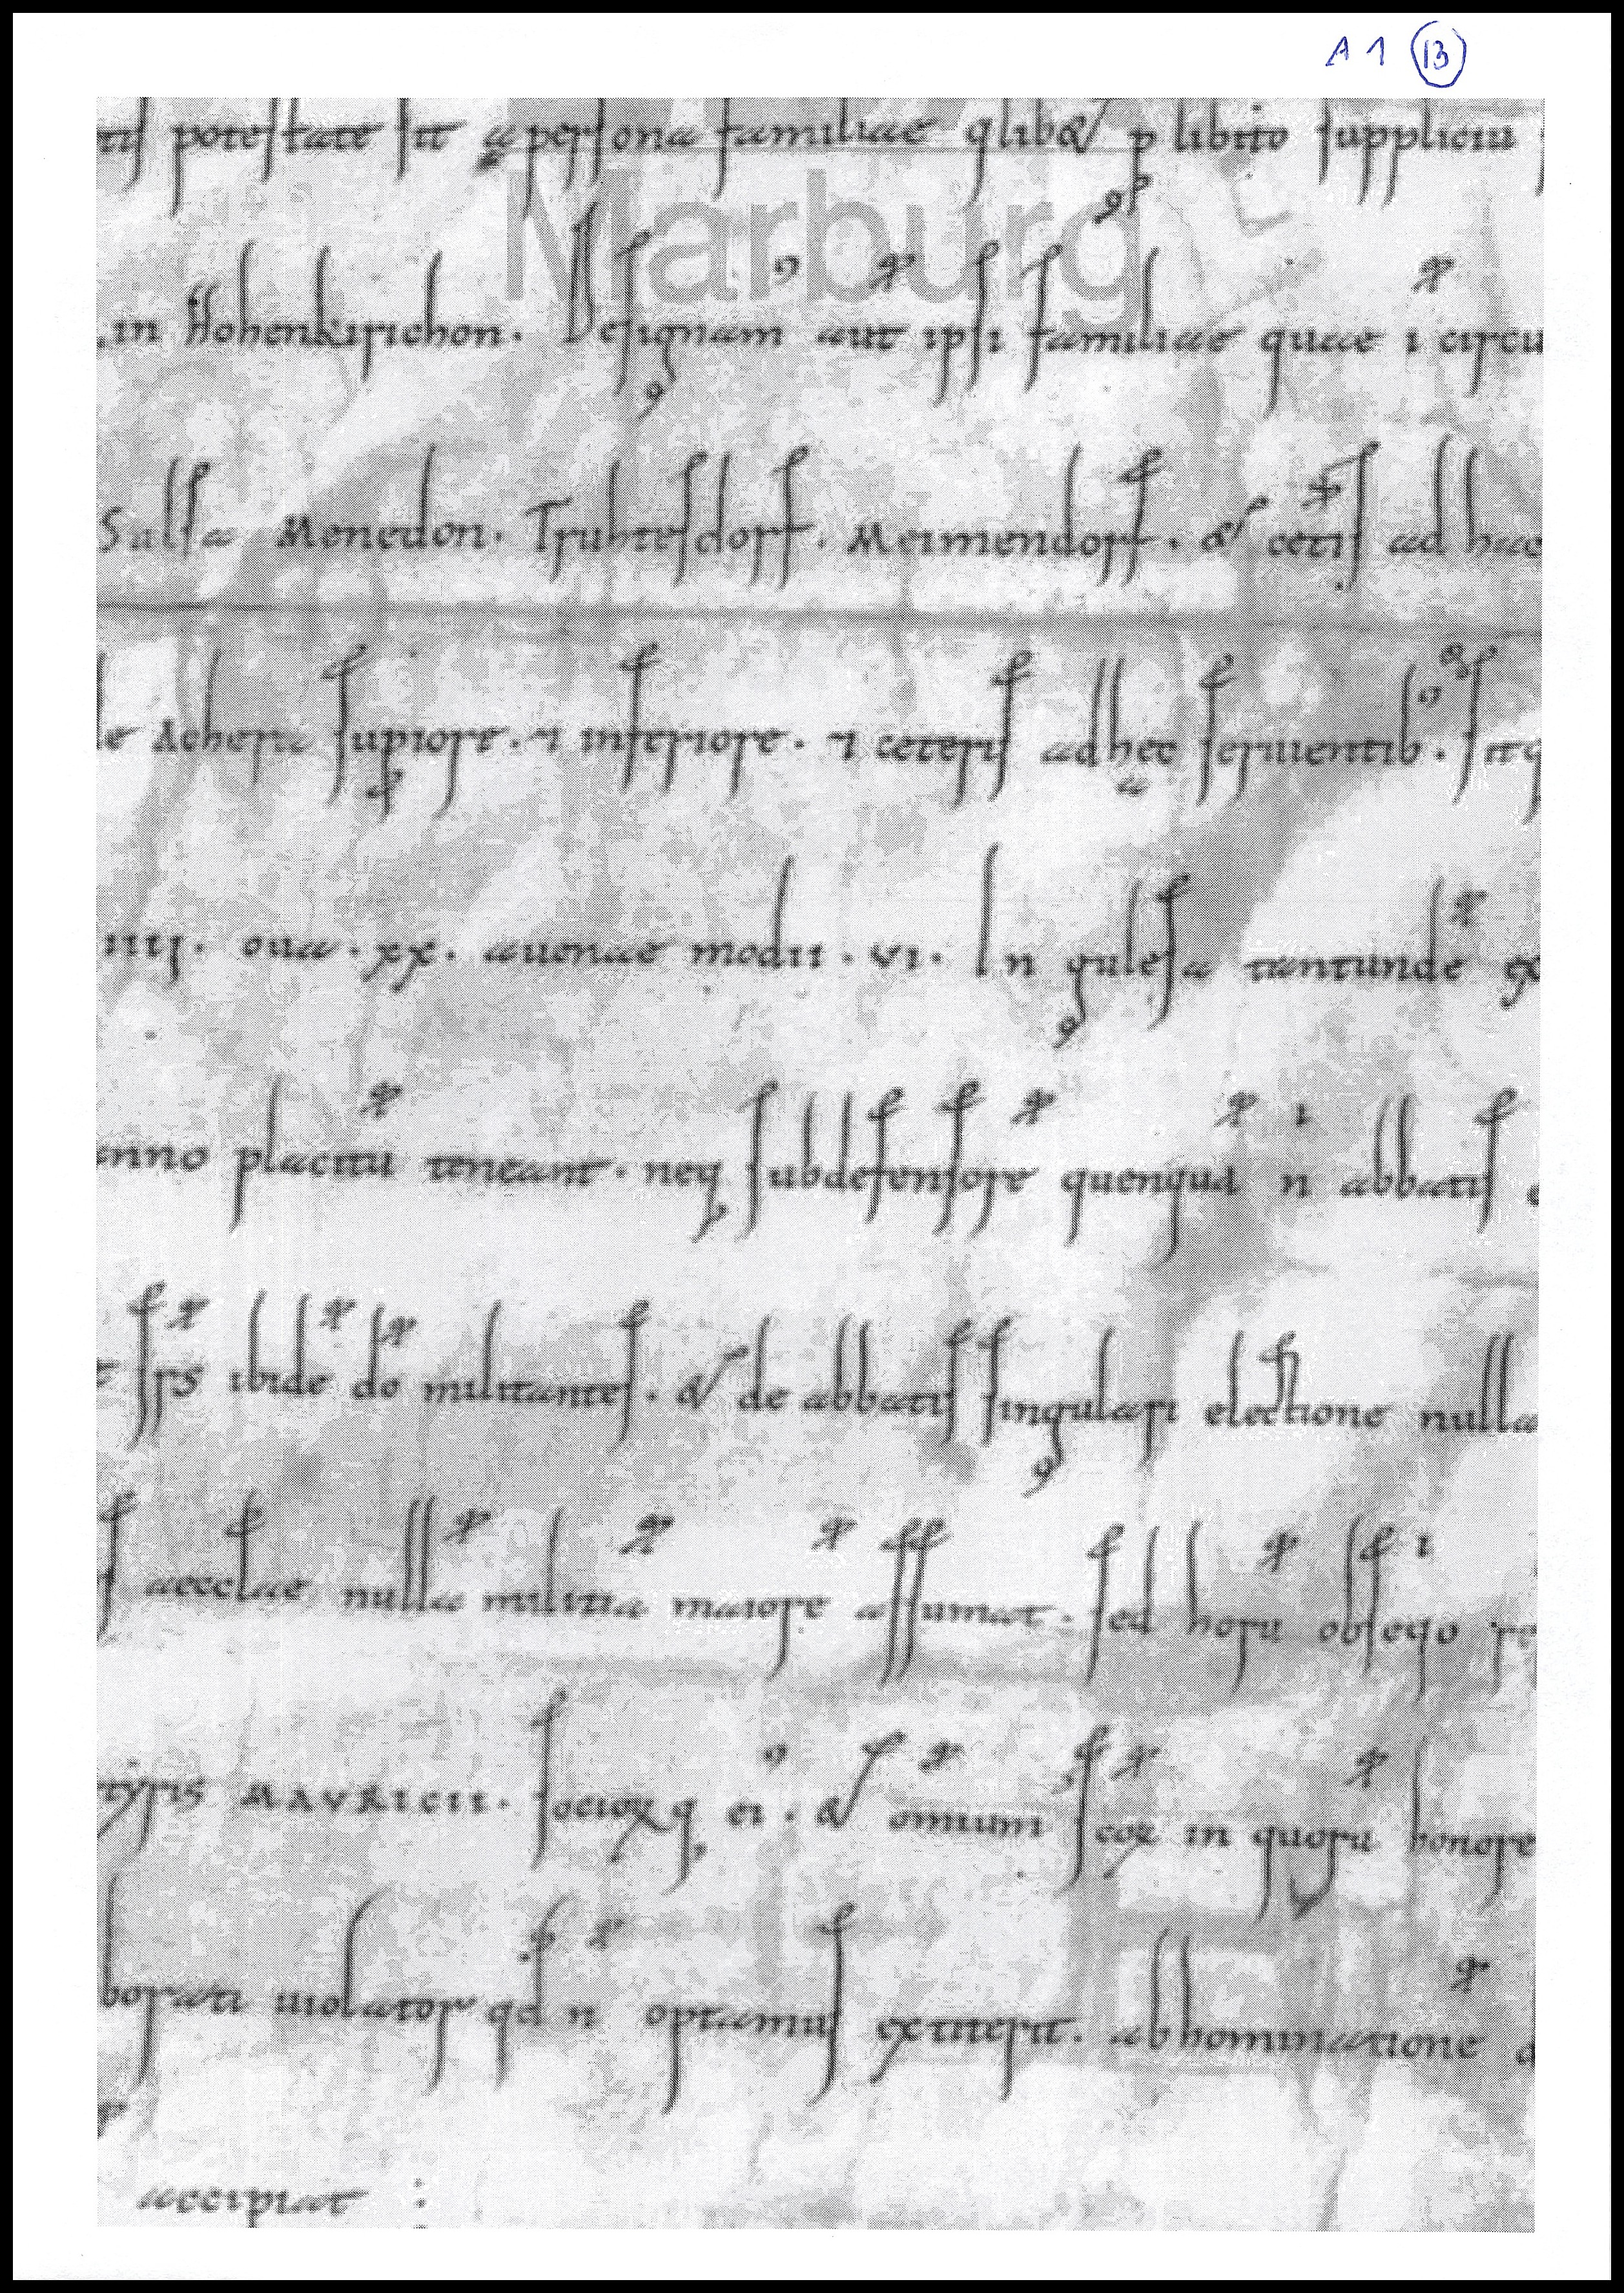 A 1 13
Marburg
tis potestate sit a persona familiae qlib& p libito suppliciu
in Hohenkirichon. Designam aut ipsi familiae quae i circu
Salsa Menedon. Truhtesdorf. Meimendorf. & cetis ad hac
le Achera supiore. ⁊ inferiore. ⁊ ceteris adhec seruientib. sitq
iiij. oua. xx. auenae modii. vi. In gulesa tantunde ex
anno placitu teneant. neq subdefensore quenqua n abbatis
frs ibide do militantes. & de abbatis singulari electione nulla
aecclae nulla militia maiore assumat. sed horu obseqo
tyris MAVRICII. socioꝝq ei. & omium scoꝝ in quoru honore
borati uiolator qd n optamus extiterit. abhominatione
accipiat :